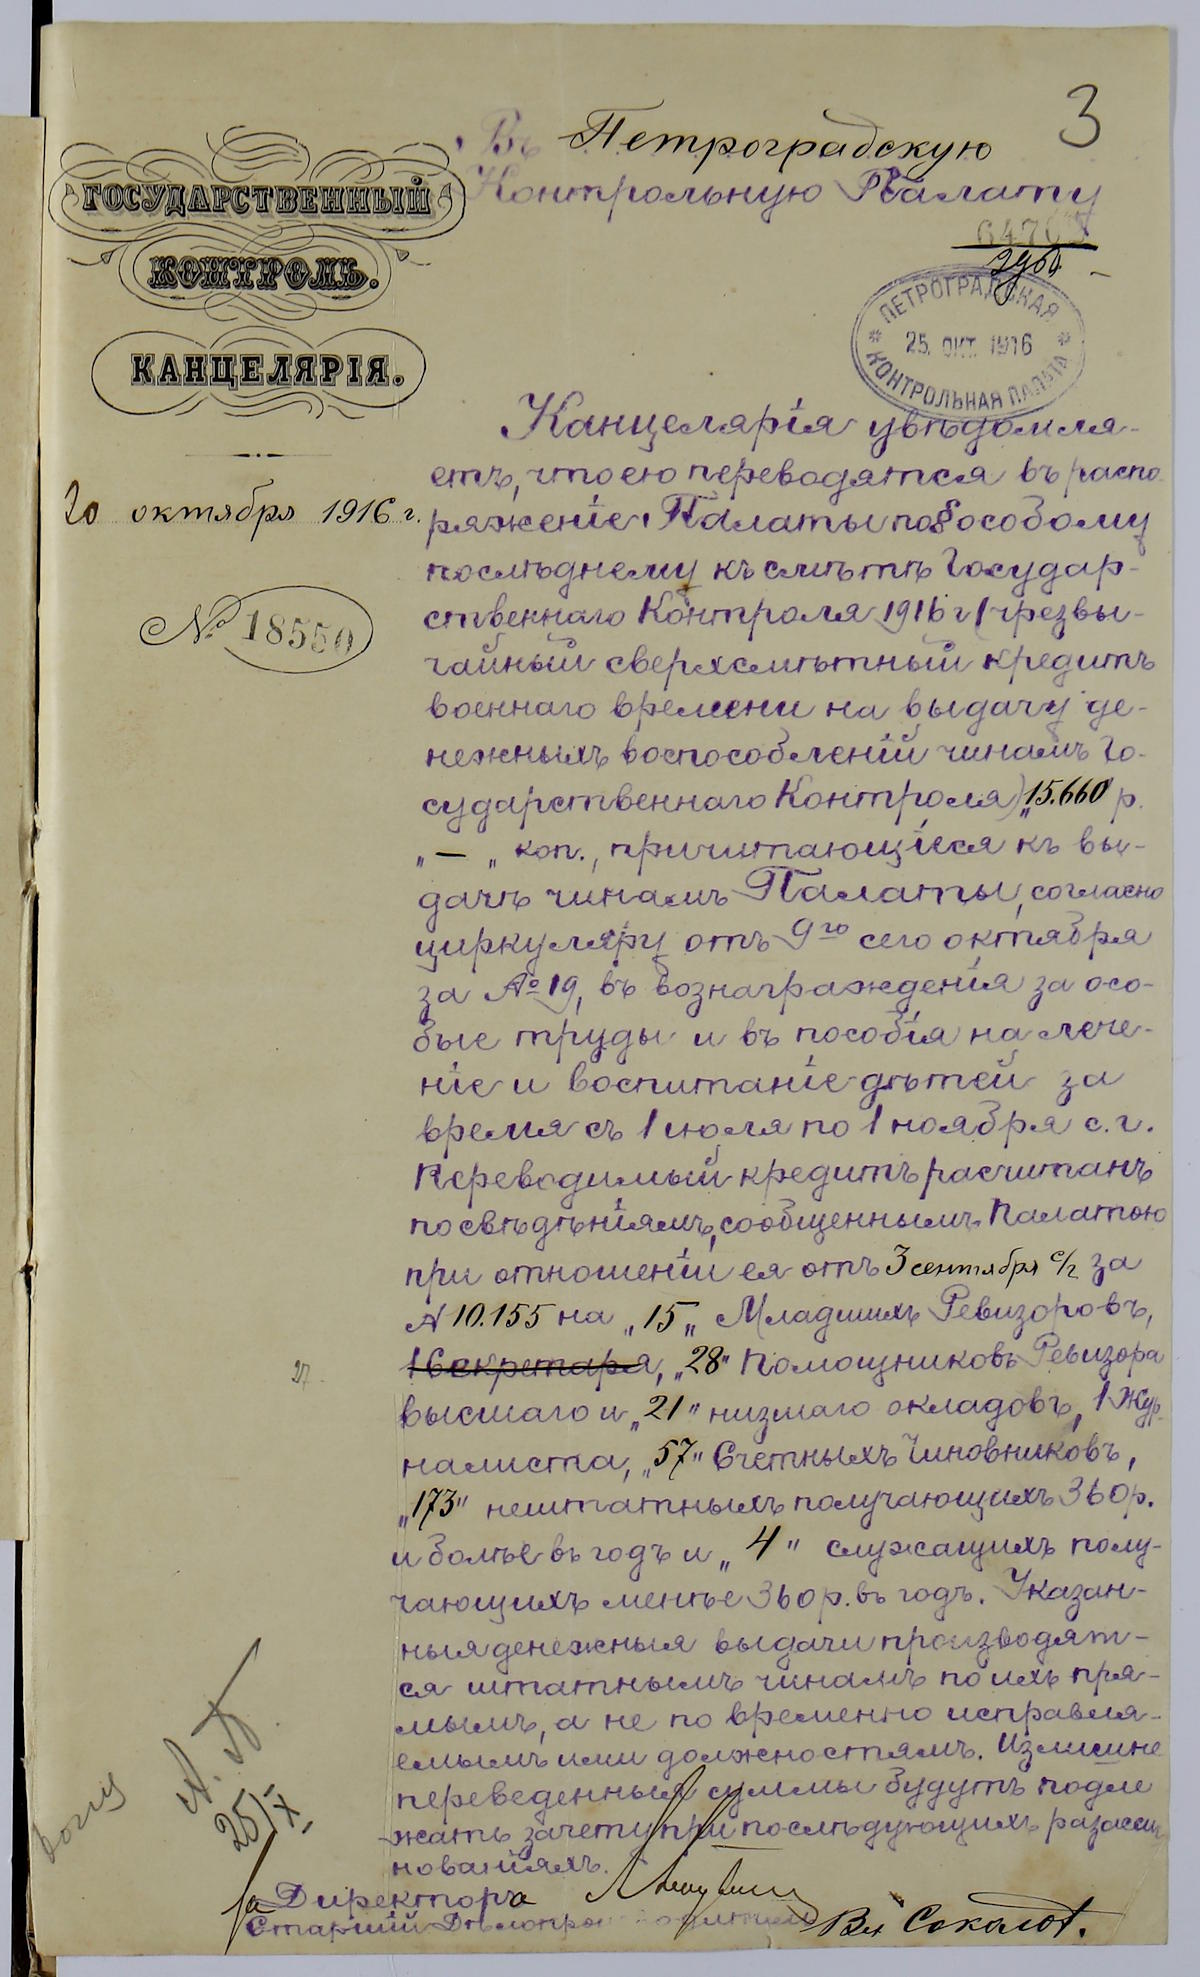 3
Въ Петроградскую
Контрольную Палату
ГОСУДАРСТВЕННЫЙ
КОНТРОЛЬ.
КАНЦЕЛЯРІЯ.
ПЕТРОГРАДСКАЯ
25. ОКТ. 1916
КОНТРОЛЬНАЯ ПАЛАТА
20 октября 1916 г.
№ 18550
Канцелярія увѣдомля-
етъ, что ею переводятся въ распо-
ряженіе Палаты по § особому
послѣднему къ смѣтѣ Государ-
ственнаго Контроля 1916 г (чрезвы-
чайный сверхсмѣтный кредитъ
военнаго времени на выдачу де-
нежныхъ воспособленій чинамъ Го-
сударственнаго Контроля) „15.660 р.
„ — „ коп., причитающіеся къ вы-
дачѣ чинамъ Палаты, согласно
циркуляру отъ 9го сего октября
за № 19, въ вознагражденія за осо-
бые труды и въ пособія на лече-
ніе и воспитаніе дѣтей за
время съ 1 іюля по 1 ноября с. г.
Переводимый кредитъ расчитанъ
по свѣдѣніямъ, сообщеннымъ Палатою
при отношеніи ея отъ 3 сентября с/г за
N 10.155 на „15„ Младшихъ Ревизоровъ,
1 Секретаря, „28" Помощниковъ Ревизора
высшаго и „21" низшаго окладовъ, 1 Жур-
налиста, „57" Счетныхъ Чиновниковъ,
„173" нештатныхъ получающихъ 360 р.
и болѣе въ годъ и „4" служащихъ полу-
чающихъ менѣе 360 р. въ годъ. Указан-
ныя денежныя выдачи производят-
ся штатнымъ чинамъ по ихъ пря-
мымъ, а не по временно исправля-
емымъ ими должностямъ. Излишне
переведенныя суммы будутъ подле
жать зачету при послѣдующихъ разасси
нованіяхъ.
27
25/X
За Директора
Старшій Дѣлопроизводитель
Вл Соколов.